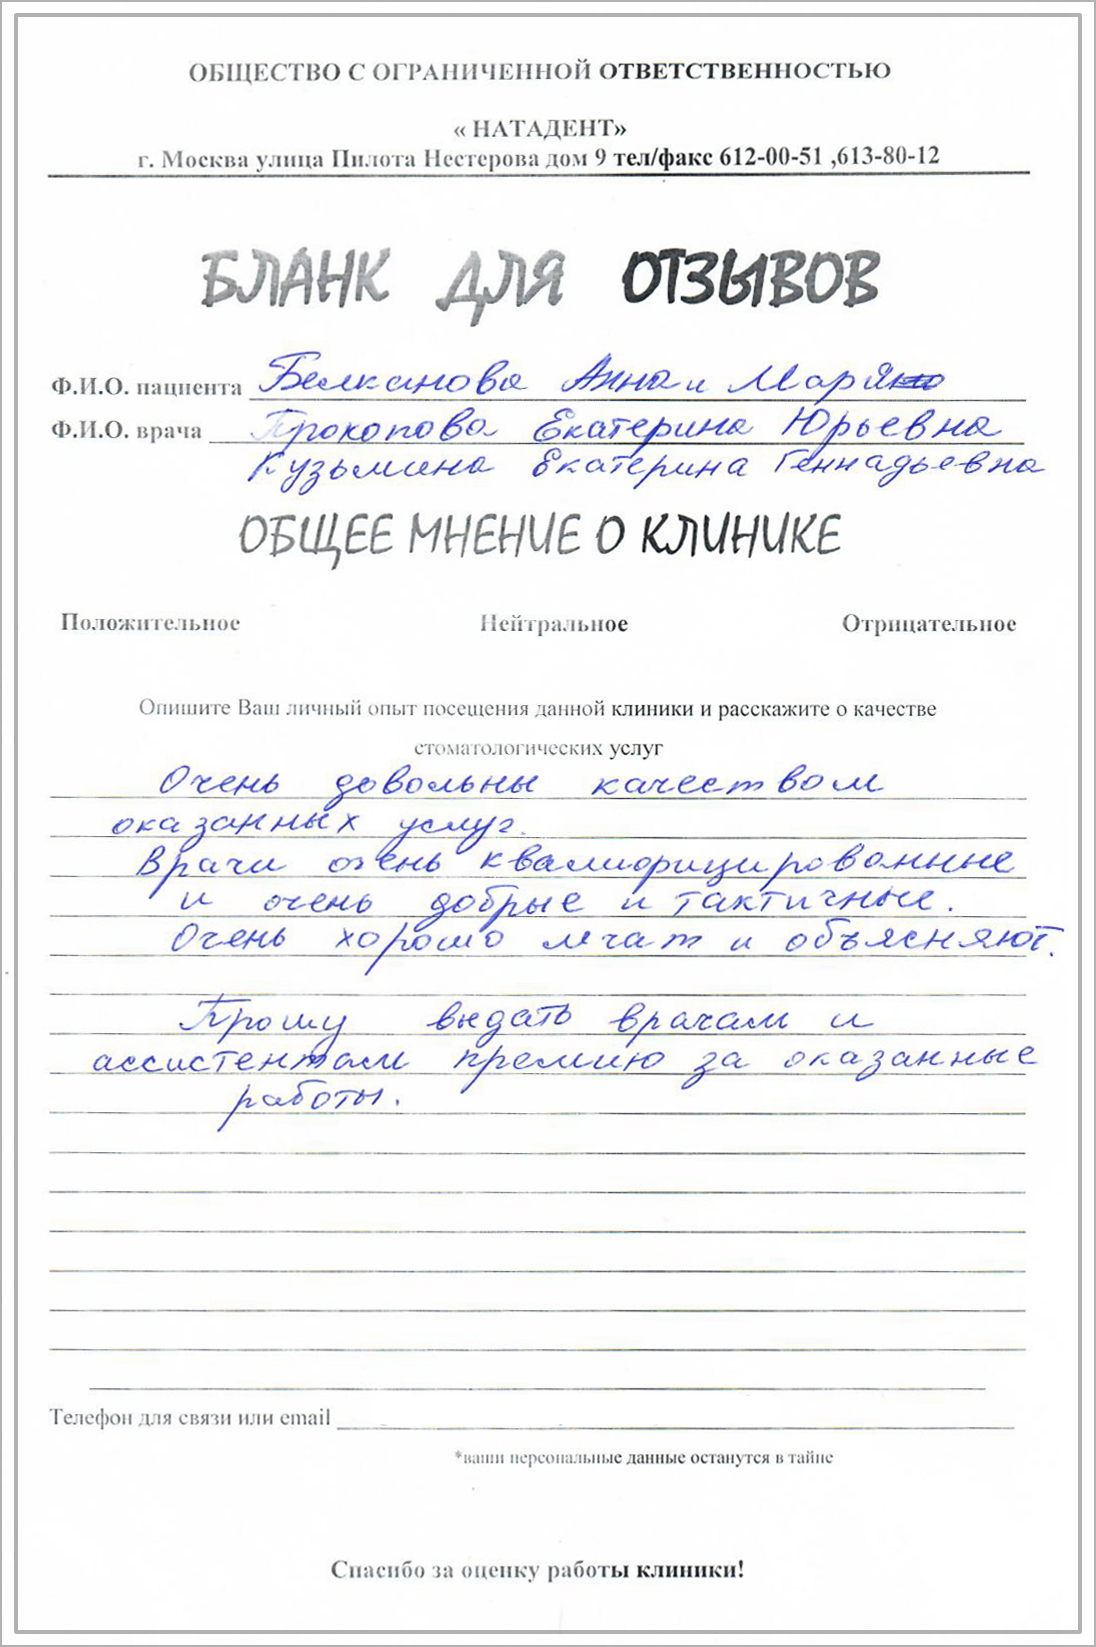 ОБЩЕСТВО С ОГРАНИЧЕННОЙ ОТВЕТСТВЕННОСТЬЮ
« НАТАДЕНТ»
г. Москва улица Пилота Нестерова дом 9 тел/факс 612-00-51 ,613-80-12
БЛАНК ДЛЯ ОТЗЫВОВ
Ф.И.О. пациента Белканова Анна и Мария
Ф.И.О. врача Прокопова Екатерина Юрьевна
Кузьмина Екатерина Геннадьевна
ОБЩЕЕ МНЕНИЕ О КЛИНИКЕ
Положительное Нейтральное Отрицательное
Опишите Ваш личный опыт посещения данной клиники и расскажите о качестве
стоматологических услуг
Очень довольны качеством
оказанных услуг.
Врачи очень квалифицированные
и очень добрые и тактичные.
Очень хорошо лечат и объясняют.
Прошу выдать врачам и
ассистентам премию за оказанные
работы.
Телефон для связи или email
*ваши персональные данные останутся в тайне
Спасибо за оценку работы клиники!